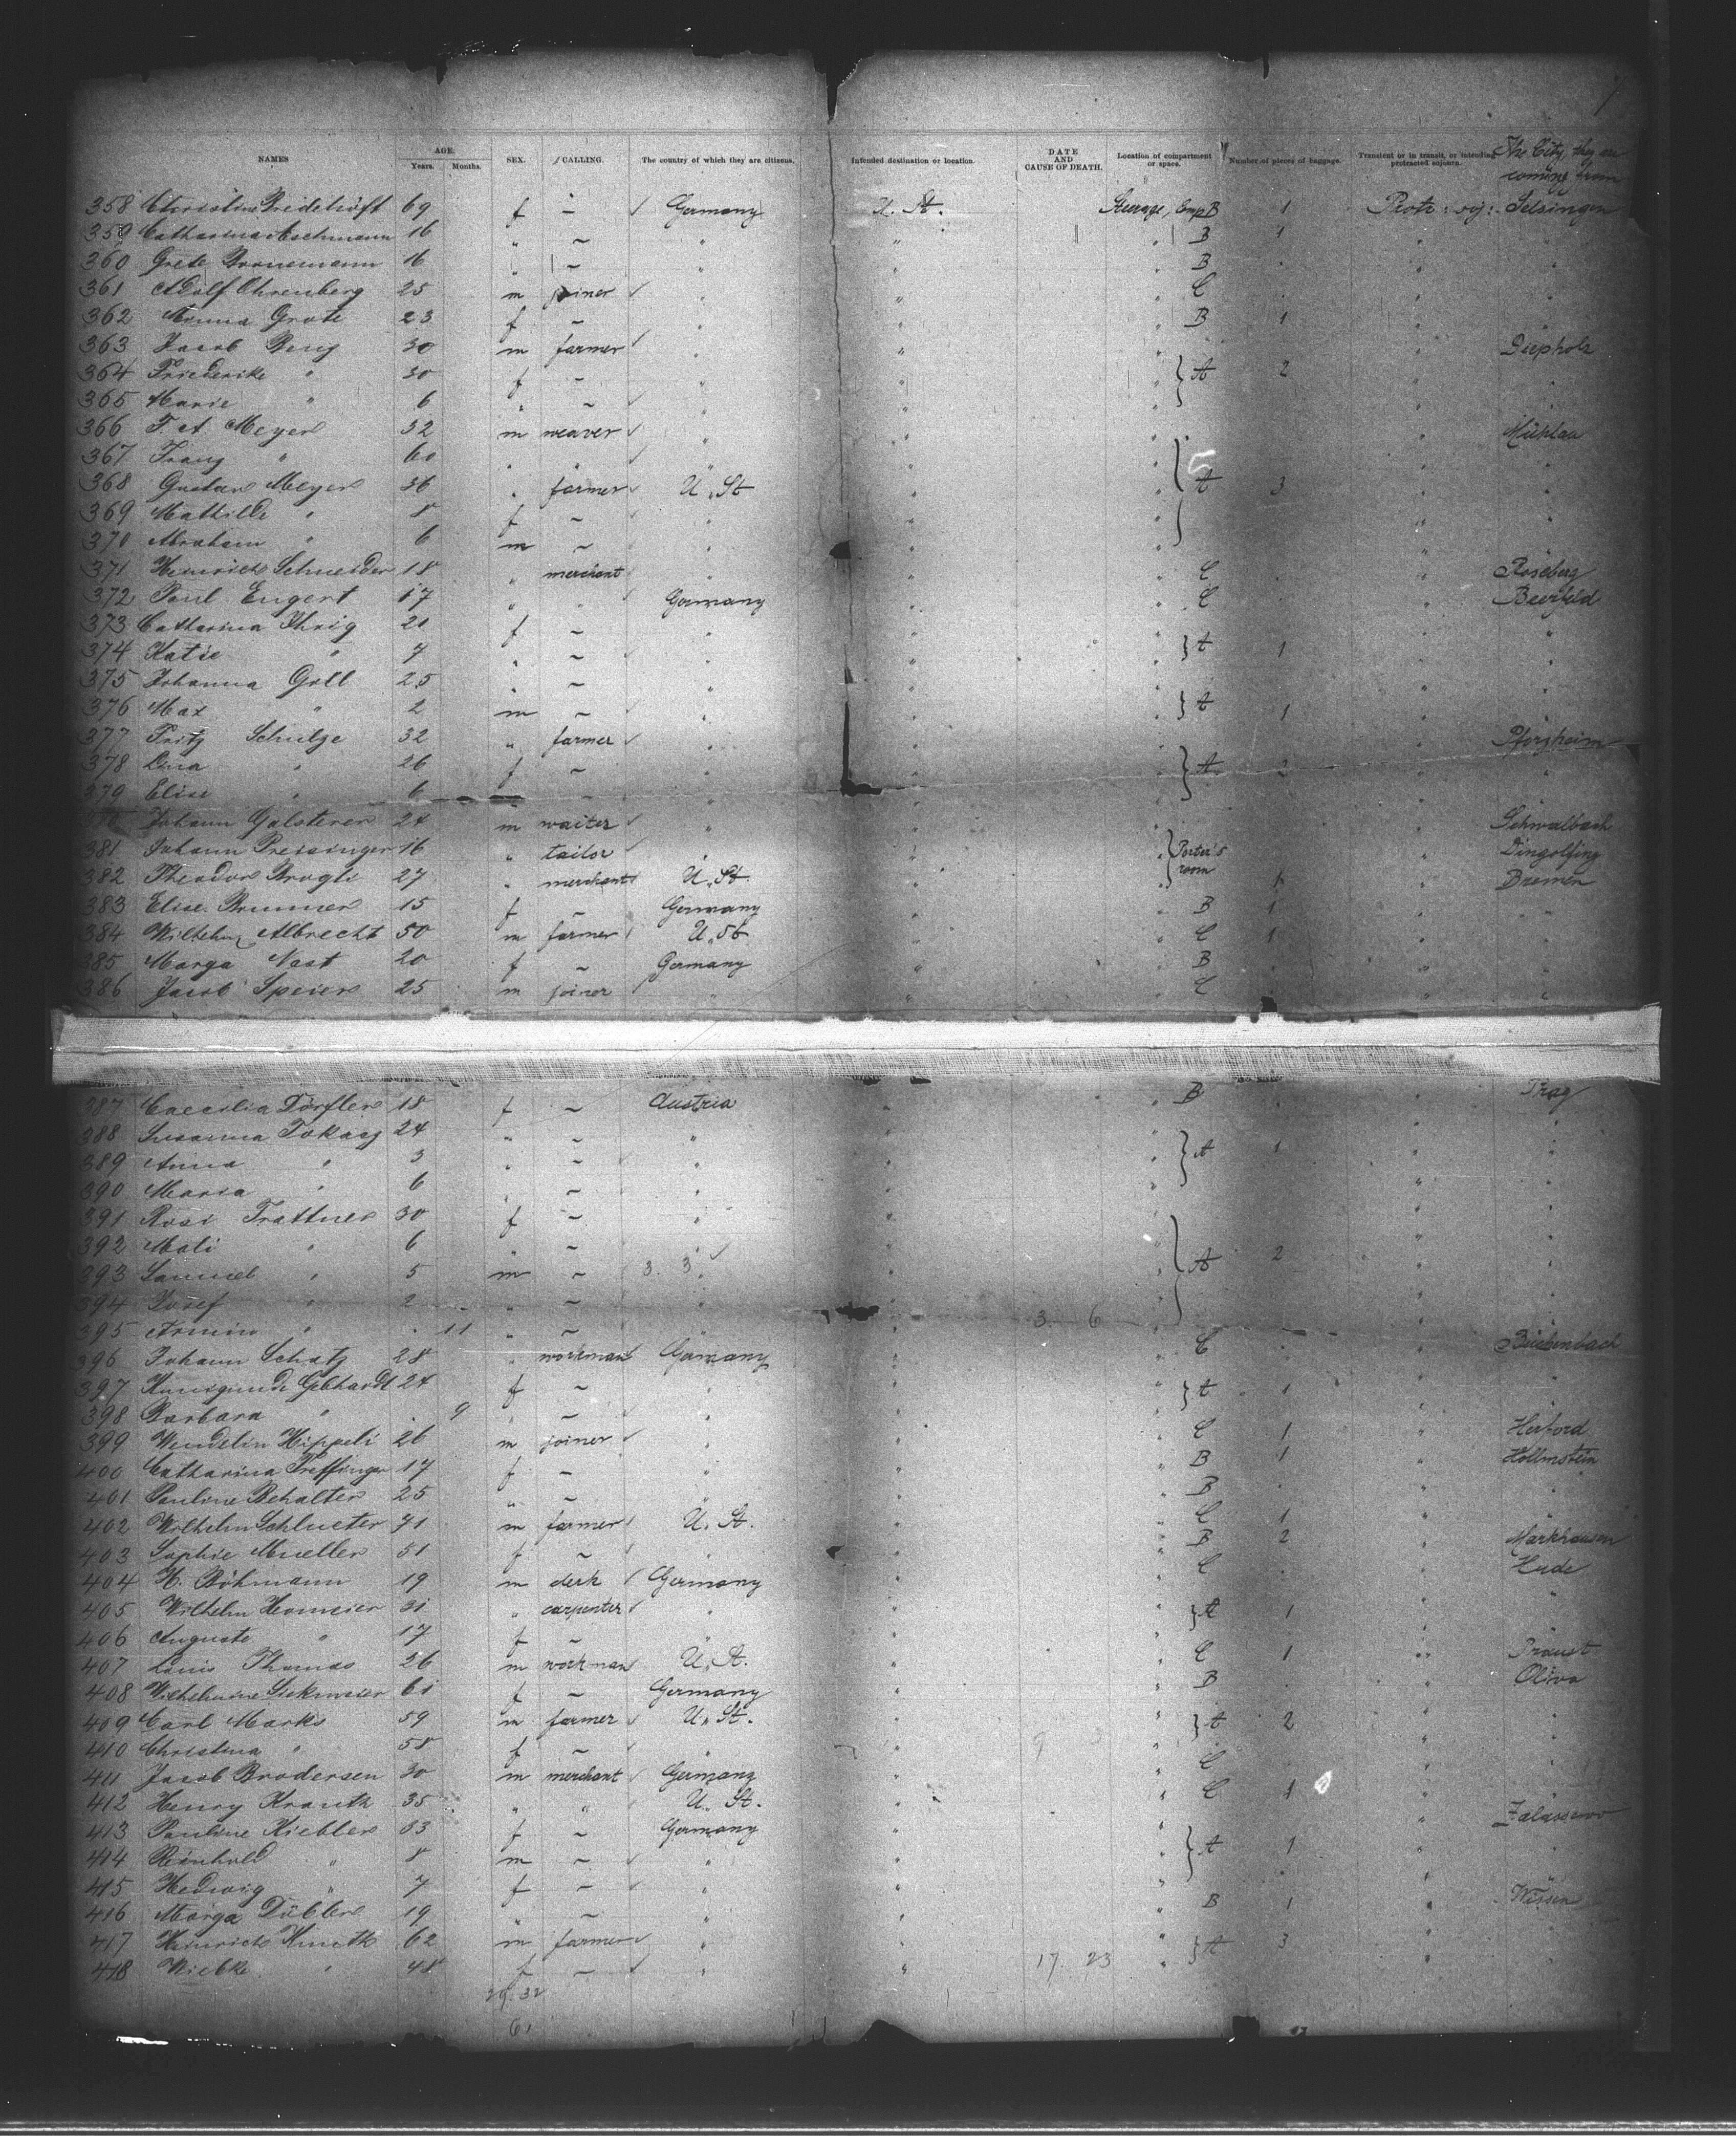 NAMES AGE. Years. Months. SEX. CALLING. The country of which they are citizens. Intended destination or location. DATE AND CAUSE OF DEATH. Location of compartment or space. Number of pieces of baggage. Transient or in transit, or intending protracted sojourn. The City, they are coming from
358 Christine Bredehöft 69 f – Germany U. St. Steerage, Comp B 1 Protr: soj: Selsingen
359 Catharina Aschmann 16 " – " " " B 1 " "
360 Grete Bornemann 16 " – " " " B " "
361 Adolf Ohrenberg 25 m joiner " " " C " "
362 Grote 23 f – " " " B 1 " "
363 Jacob Berg 30 m farmer " " " Diepholz
364 Friederike " 30 f – " " " A 2 " "
365 Marie " 6 " – " " " " "
366 F. A. Meyer 32 m weaver " " " Mühlau
367 Franz " 60 " " " " " " "
368 Gustav Meyer 36 " farmer U. St " " A 3 " "
369 Mathilde " 8 f – " " " " "
370 Abraham " 6 m – " " " " "
371 Heinrich Schneider 18 " merchant " " " C " Roseberg
372 Paul Engert 17 " " Germany " " C " Beerfeld
373 Catharina Ihrig 21 f – " " " " "
374 Katie " 7 " – " " " A 1 " "
375 Johanna Goll 25 " – " " " " "
376 Max " 2 m – " " " A 1 " "
377 Fritz Schulze 32 " farmer " " " " Pforzheim
378 Lina " 26 f – " " " A 2 " "
379 Elise " 6 " – " " " " "
Johann Galsterer 24 m waiter " " " " Schwalbach
381 Johann Preisinger 16 " tailor " " " Porter's room " Dingolfing
382 Theodor Brogli 27 " merchant U. St. " " 1 " Bremen
383 Elise Brunner 15 f – Germany " " B 1 " "
384 Wilhelm Albrecht 50 m farmer U. St " " C 1 " "
385 Marga Nast 20 f – Germany " " B " "
386 Jacob Speier 25 m joiner " " " C " "
387 Caecilia Dörfler 18 f – Austria " " B " Prag
388 Susanna Tokacz 24 " – " " " " "
389 Anna " 3 " – " " " A 1 " "
390 Maria " 6 " – " " " " "
391 Rosi Trattner 30 f – " " " " "
392 Mali " 6 " – " " " 2 " "
393 Samuel " 5 m – 3. 3. " " " A " "
394 Josef " 2 " – " " 3. 6 " " "
395 Armin " 11 " – " " " " "
396 Johann Schatz 28 " workman Germany " " C " Büchenbach
397 Kunigunde Gebhardt 24 f – " " " A 1 " "
398 Barbara " 9 " – " " " " "
399 Wendelin Hippeli 26 m joiner " " " C 1 " Herford
400 Catharina Treffinger 17 f – " " " B 1 " Hollmstein
401 Pauline Behalter 25 " – " " " B " "
402 Wilhelm Schlueter 71 m farmer U. St. " " C 1 "
403 Sophie Mueller 51 f – " " " B 2 " Markhausen
404 H. Böhmann 19 m clerk Germany " " C " Hude
405 Wilhelm Hermeier 31 " carpenter " " " A 1 " "
406 Auguste " 17 f – " " " " "
407 Louis Thomas 26 m workman U. St. " " C 1 " Praust
408 Wilhelmine Siekmeier 61 f – Germany " " B " Oliva
409 Carl Marks 59 m farmer U. St. " " A 2 " "
410 Christina " 58 f – " " 9 3 " " "
411 Jacob Brodersen 30 m merchant Germany " " C " "
412 Henry Krauth 35 " " U. St. " " C 1 " "
413 Pauline Kiebler 33 f – Germany " " "
414 Reinhold " 8 m – " " " A 1 " "
415 Hedwig " 7 f – " " " " "
416 Marga Döbler 19 " – " " " B 1 " Wissen
417 Heinrich Knuth 62 m farmer " " " A 3 " "
418 Wiebke " 48 f – " " 17. 23 " " "
29. 32
61